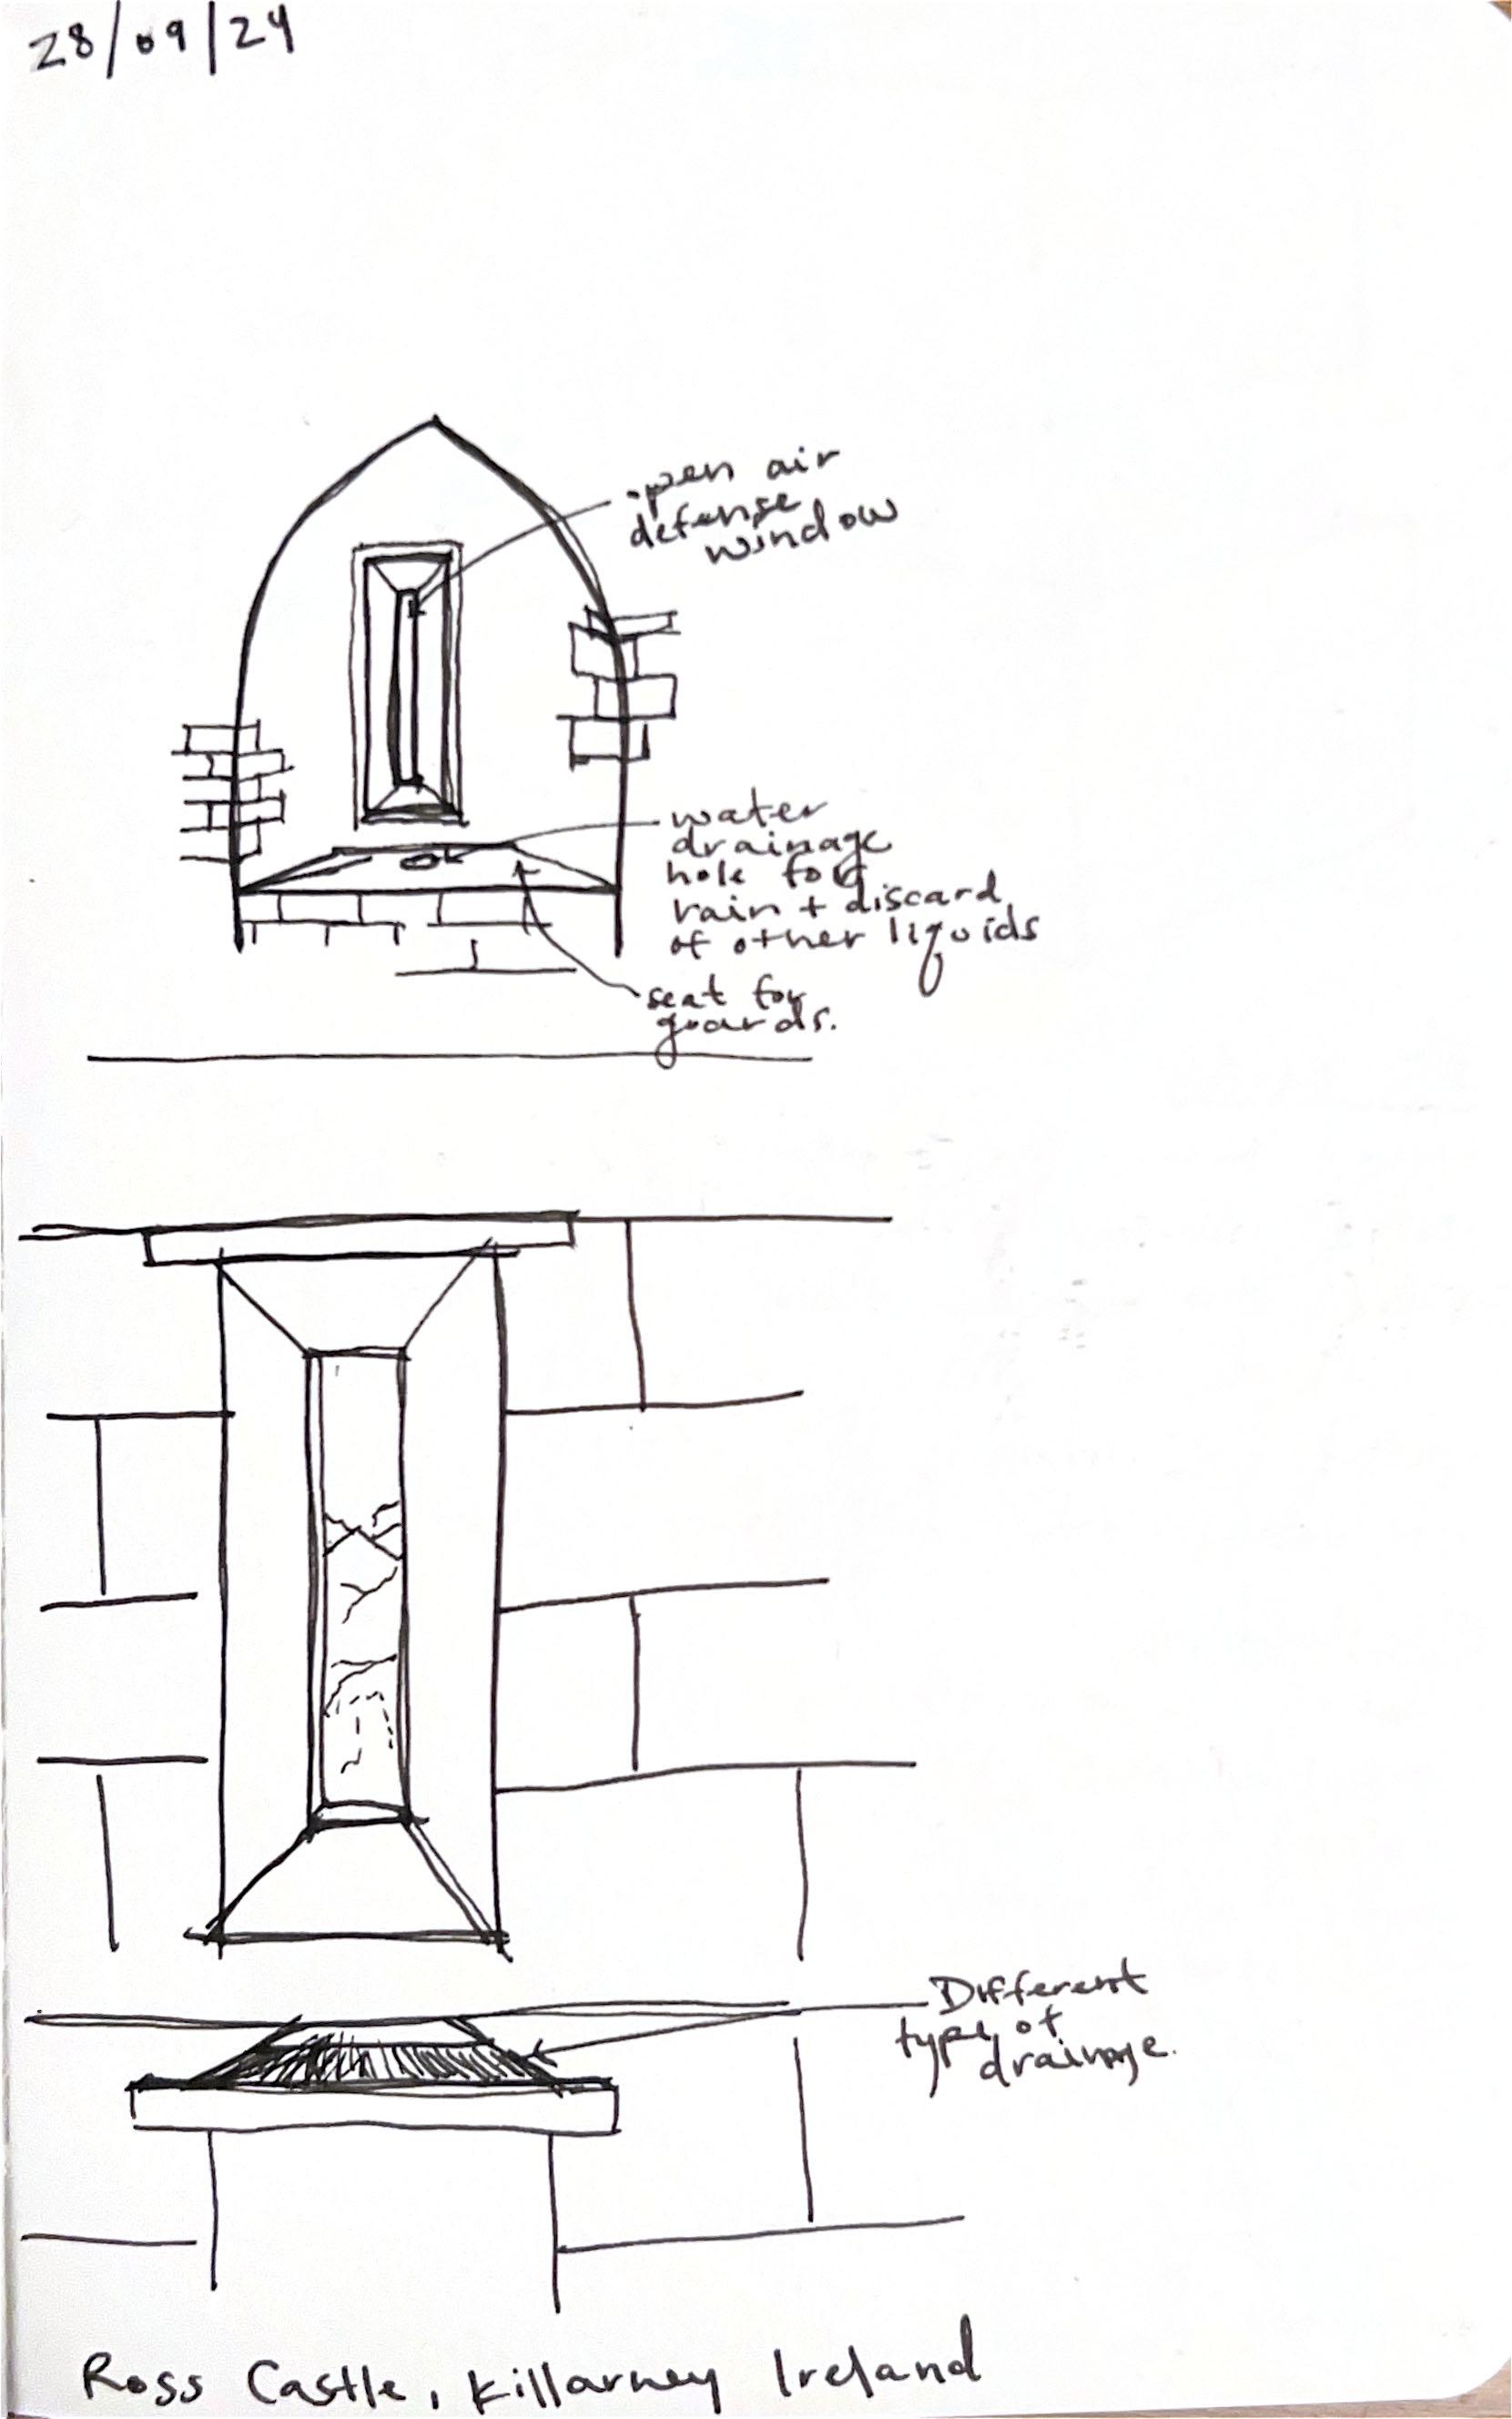 28/09/24
open air
defense
window
water
drainage
hole for
rain + discard
of other liquids
seat for
guards.
Different
type of
drainage.
Ross Castle, Killarney Ireland